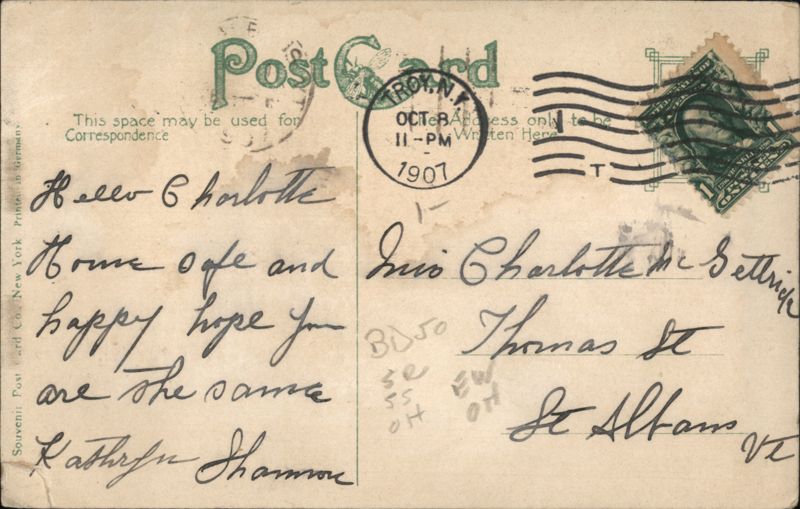 Post Card
This space may be used for
Correspondence
The Address only to be
Written Here
TROY, N.Y.
OCT 8
11-PM
1907
T
1
1
Souvenir Post Card Co., New York Printed in Germany
Hello Charlotte
Home safe and
happy hope you
are the same
Kathryn Shannon
Miss Charlotte McGettrick
Thomas St
St Albans
Vt
1-
BD50
SR
SS
OH
EW
OH